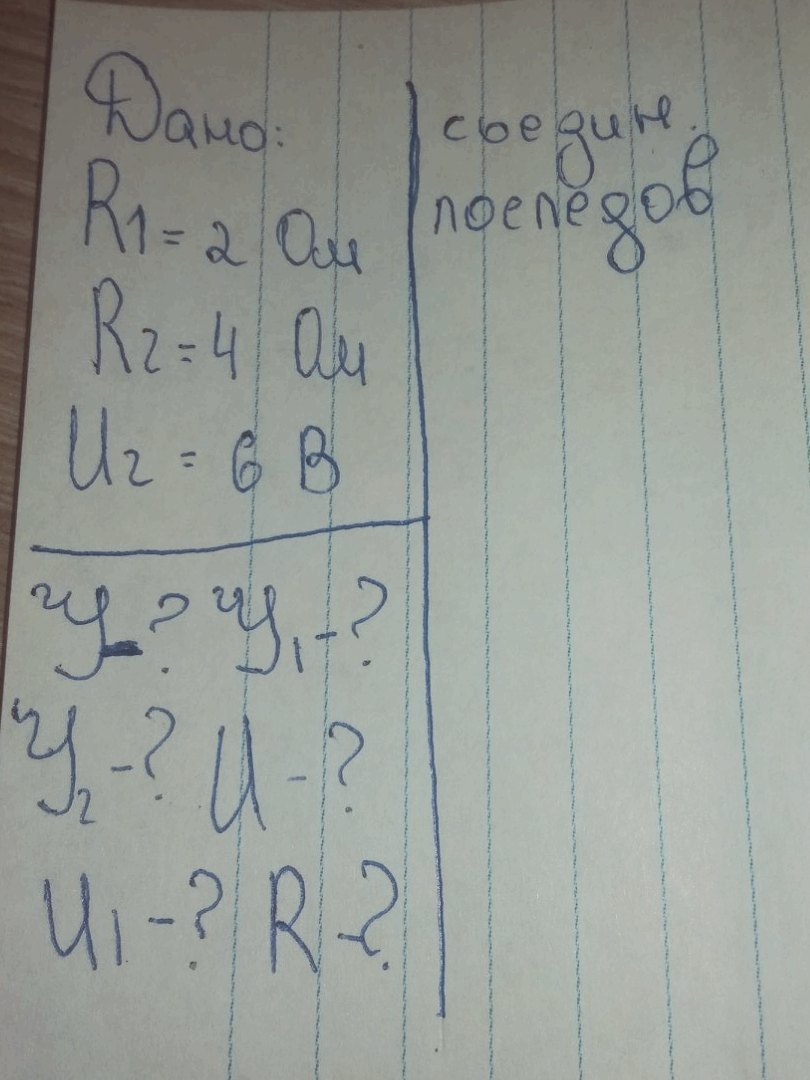 Дано:
R1 = 2 Ом
R2 = 4 Ом
U2 = 6 В
У-? У1-?
У2-? U-?
U1-? R-?
сьедин.
поспедов